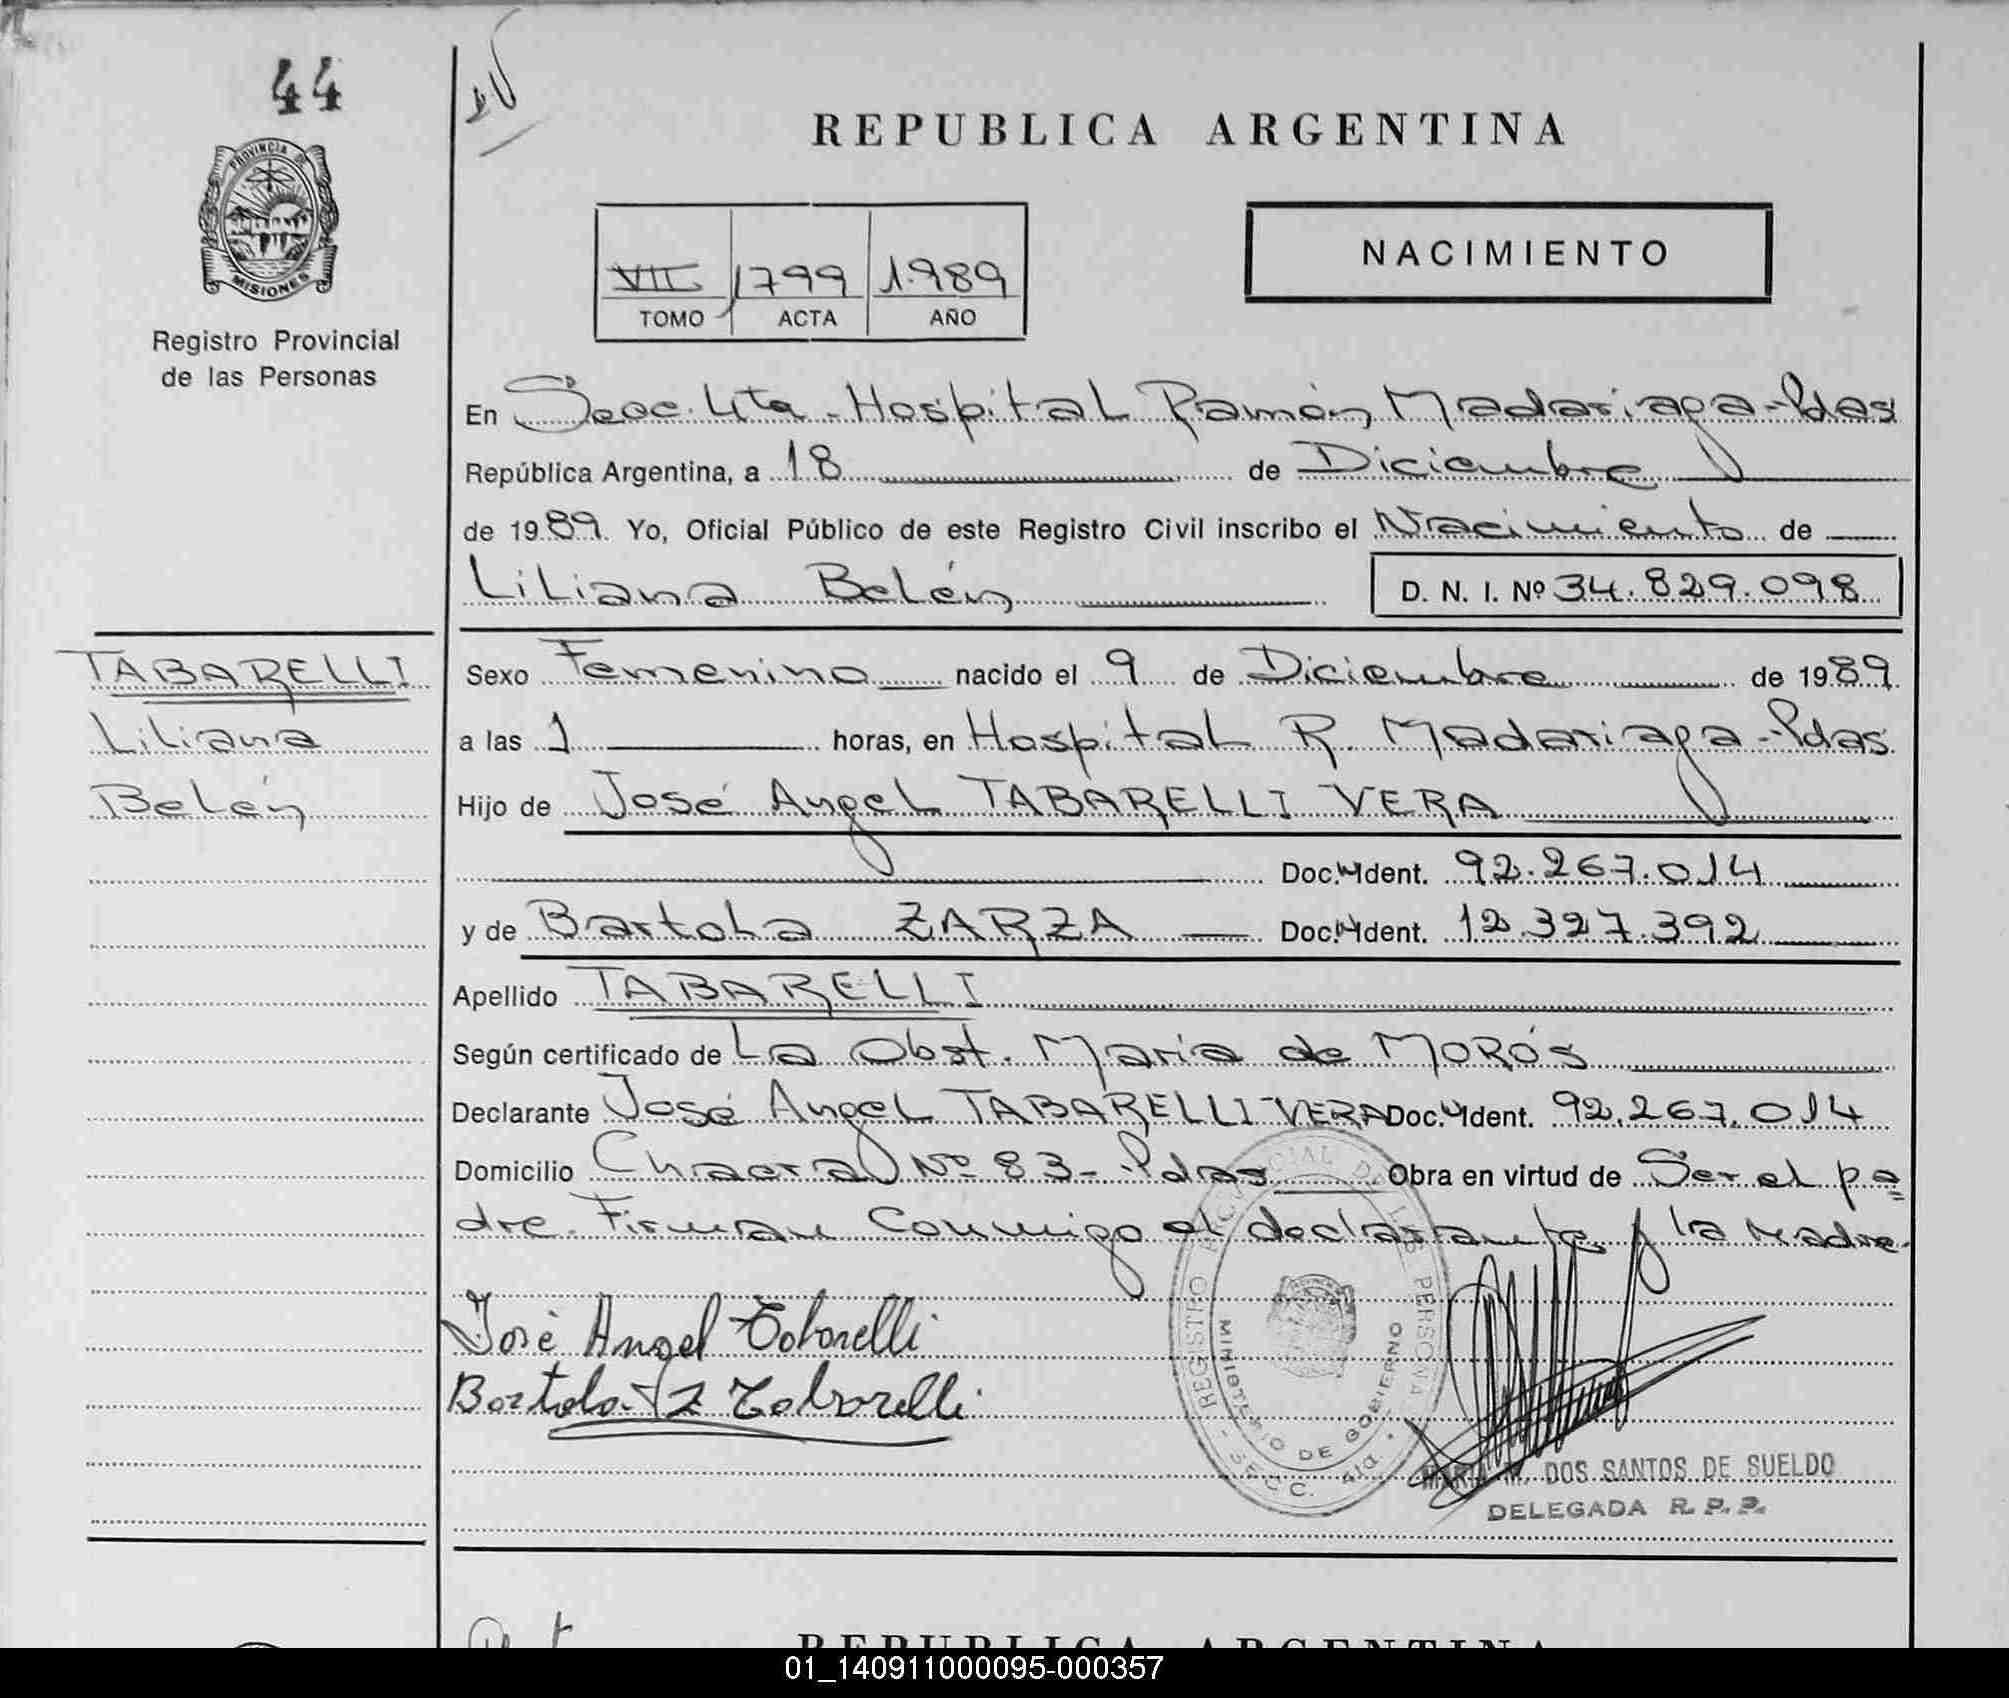 44
REPUBLICA ARGENTINA
PROVINCIA DE
MISIONES
Registro Provincial
de las Personas
VII 1799 1.989
TOMO ACTA AÑO
NACIMIENTO
En Secc. 4ta - Hospital Ramón Madariaga - Pdas
República Argentina, a 18 de Diciembre
de 1989. Yo, Oficial Público de este Registro Civil inscribo el Nacimiento de
Liliana Belén
D. N. I. Nº 34.829.098
TABARELLI
Liliana
Belén
Sexo Femenino nacido el 9 de Diciembre de 1989
a las 1 horas, en Hospital R. Madariaga - Pdas
Hijo de José Angel TABARELLI VERA
Doc. Ident. 92.267.014
y de Bartola ZARZA Doc. Ident. 12.327.392
Apellido TABARELLI
Según certificado de La Obst. María de MORÓS
Declarante José Angel TABARELLI VERA Doc. Ident. 92.267.014
Domicilio Chacra Nº 83 - Pdas Obra en virtud de Ser el pa=
dre. Firman Conmigo el declarante y la Madre.
José Angel Tabarelli
Bartola Z Tabarelli
REGISTRO PROVINCIAL DE LAS PERSONAS
MINISTERIO DE GOBIERNO
SECC. 4ta.
MARIA DOS SANTOS DE SUELDO
DELEGADA R. P. P.
REPUBLICA ARGENTINA
01_140911000095-000357